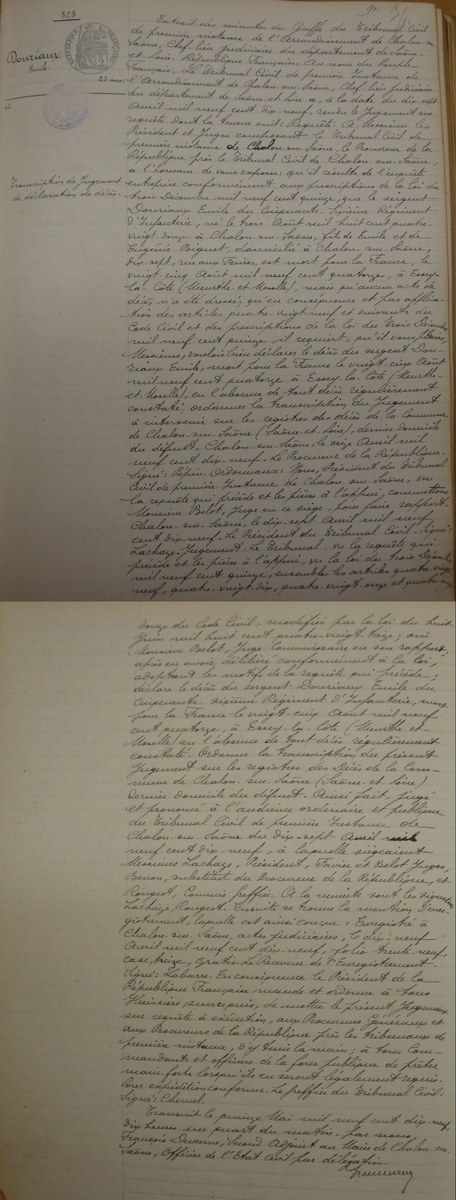 323
Douriaux
Emile
22 ans
Transcription de Jugement
de déclaration de décès.
Extrait des minutes du Greffe du Tribunal Civil
de première instance de l'Arrondissement de Chalon-sur-
Saône, Chef-lieu judiciaire du département de Saône
et-Loire. République Française. Au nom du Peuple
Français. Le Tribunal Civil de première Instance de
l'Arrondissement de Chalon-sur-Saône, Chef-lieu judiciaire
du département de Saône-et-Loire a, à la date du dix-sept
Avril mil neuf cent dix-neuf, rendu le Jugement sur
requête dont la teneur suit: Requête. A Messieurs les
Président et Juges composant le Tribunal Civil de
première instance de Chalon-sur-Saône, le Procureur de la
République près le Tribunal Civil de Chalon-sur-Saône,
a l'honneur de vous exposer, qu'il résulte de l'enquête
entreprise conformément aux prescriptions de la loi du
trois Décembre mil neuf cent quinze, que le sergent
Douriaux Emile du Cinquante-sixième Régiment
d'Infanterie, né le trois Août mil huit cent quatre-
vingt-douze à Chalon-sur-Saône, fils de Emile et de
Eugénie Boiguet, domicilié à Chalon-sur-Saône,
dix-sept, rue aux Fèvres, est mort pour la France, le
vingt-cinq Août mil neuf cent quatorze, à Essey-
la-Côte (Meurthe-et-Moselle), mais qu'aucun acte de
décès n'a été dressé; qu'en conséquence et par applica-
tion des articles quatre-vingt-neuf et suivants du
Code Civil et des prescriptions de la loi du trois Décembre
mil neuf cent quinze, il requiert, qu'il vous plaise,
Messieurs, vouloir bien déclarer le décès du sergent Dou-
riaux Emile, mort pour la France le vingt-cinq Août
mil neuf cent quatorze à Essey-la-Côte (Meurthe-
et-Moselle), en l'absence de tout décès régulièrement
constaté, ordonner la transcription du Jugement
à intervenir sur les registres des décès de la Commune
de Chalon-sur-Saône (Saône-et-Loire), dernier domicile
du défunt. Chalon-sur-Saône, le seize Avril mil
neuf cent dix-neuf. Le Procureur de la République.
Signé: Pépin. Ordonnance: Nous, Président du Tribunal
Civil de première Instance de Chalon-sur-Saône, vu
la requête qui précède et les pièces à l'appui, commettons
Monsieur Belot, Juge en ce siège, pour faire rapport.
Chalon-sur-Saône, le dix-sept Avril mil neuf
cent dix-neuf. Le Président du Tribunal Civil. Signé:
Lachaze. Jugement. Le Tribunal, vu la requête qui
précède et les pièces à l'appui, vu la loi du trois Décembre
mil neuf cent quinze, ensemble les articles quatre-vingt-
neuf, quatre-vingt-dix, quatre-vingt-onze et quatre-vingt-
douze du Code Civil, modifiés par la loi du huit
Juin mil huit cent quatre-vingt-treize; ouï
Monsieur Belot, Juge Commissaire en son rapport;
après en avoir délibéré conformément à la loi,
adoptant les motifs de la requête qui précède;
déclare le décès du sergent Douriaux Emile du
Cinquante-sixième Régiment d'Infanterie, mort
pour la France le vingt-cinq Août mil neuf
cent quatorze, à Essey-la-Côte (Meurthe-et-
Moselle) en l'absence de tout décès régulièrement
constaté. Ordonne la transcription du présent
Jugement sur les registres des décès de la Com-
mune de Chalon-sur-Saône (Saône-et-Loire)
dernier domicile du défunt. Ainsi fait, jugé
et prononcé à l'audience ordinaire et publique
du Tribunal Civil de première Instance de
Chalon-sur-Saône du dix-sept Avril mil
neuf cent dix-neuf, à laquelle siégeaient
Messieurs Lachaze, Président, Favier et Belot Juges,
Benon, substitut du Procureur de la République, et
Rougeot, Commis-greffier. A la minute sont les signatures
Lachaze, Rougeot. Ensuite se trouve la mention d'enre-
gistrement, laquelle est ainsi conçue: Enregistré à
Chalon-sur-Saône, actes judiciaires, le dix-neuf
Avril mil neuf cent dix-neuf, folio trente-neuf,
case treize, gratis. Le Receveur de l'Enregistrement.
Signé: Labarre. En conséquence le Président de la
République Française mande et ordonne à tous
Huissiers, sur ce requis, de mettre le présent Jugement
sur requête à exécution, aux Procureurs Généraux et
aux Procureurs de la République près les tribunaux de
première instance, d'y tenir la main; à tous Com-
mandants et officiers de la force publique de prêter
main-forte lorsqu'ils en seront légalement requis.
Pour expédition conforme. Le greffier du Tribunal Civil:
Signé: Chernel.
Transcrit le quinze Mai mil neuf cent dix-neuf,
dix heures un quart du matin, par nous,
François Damerne, Second Adjoint au Maire de Chalon-sur-
Saône, Officier de l'Etat civil par délégation.